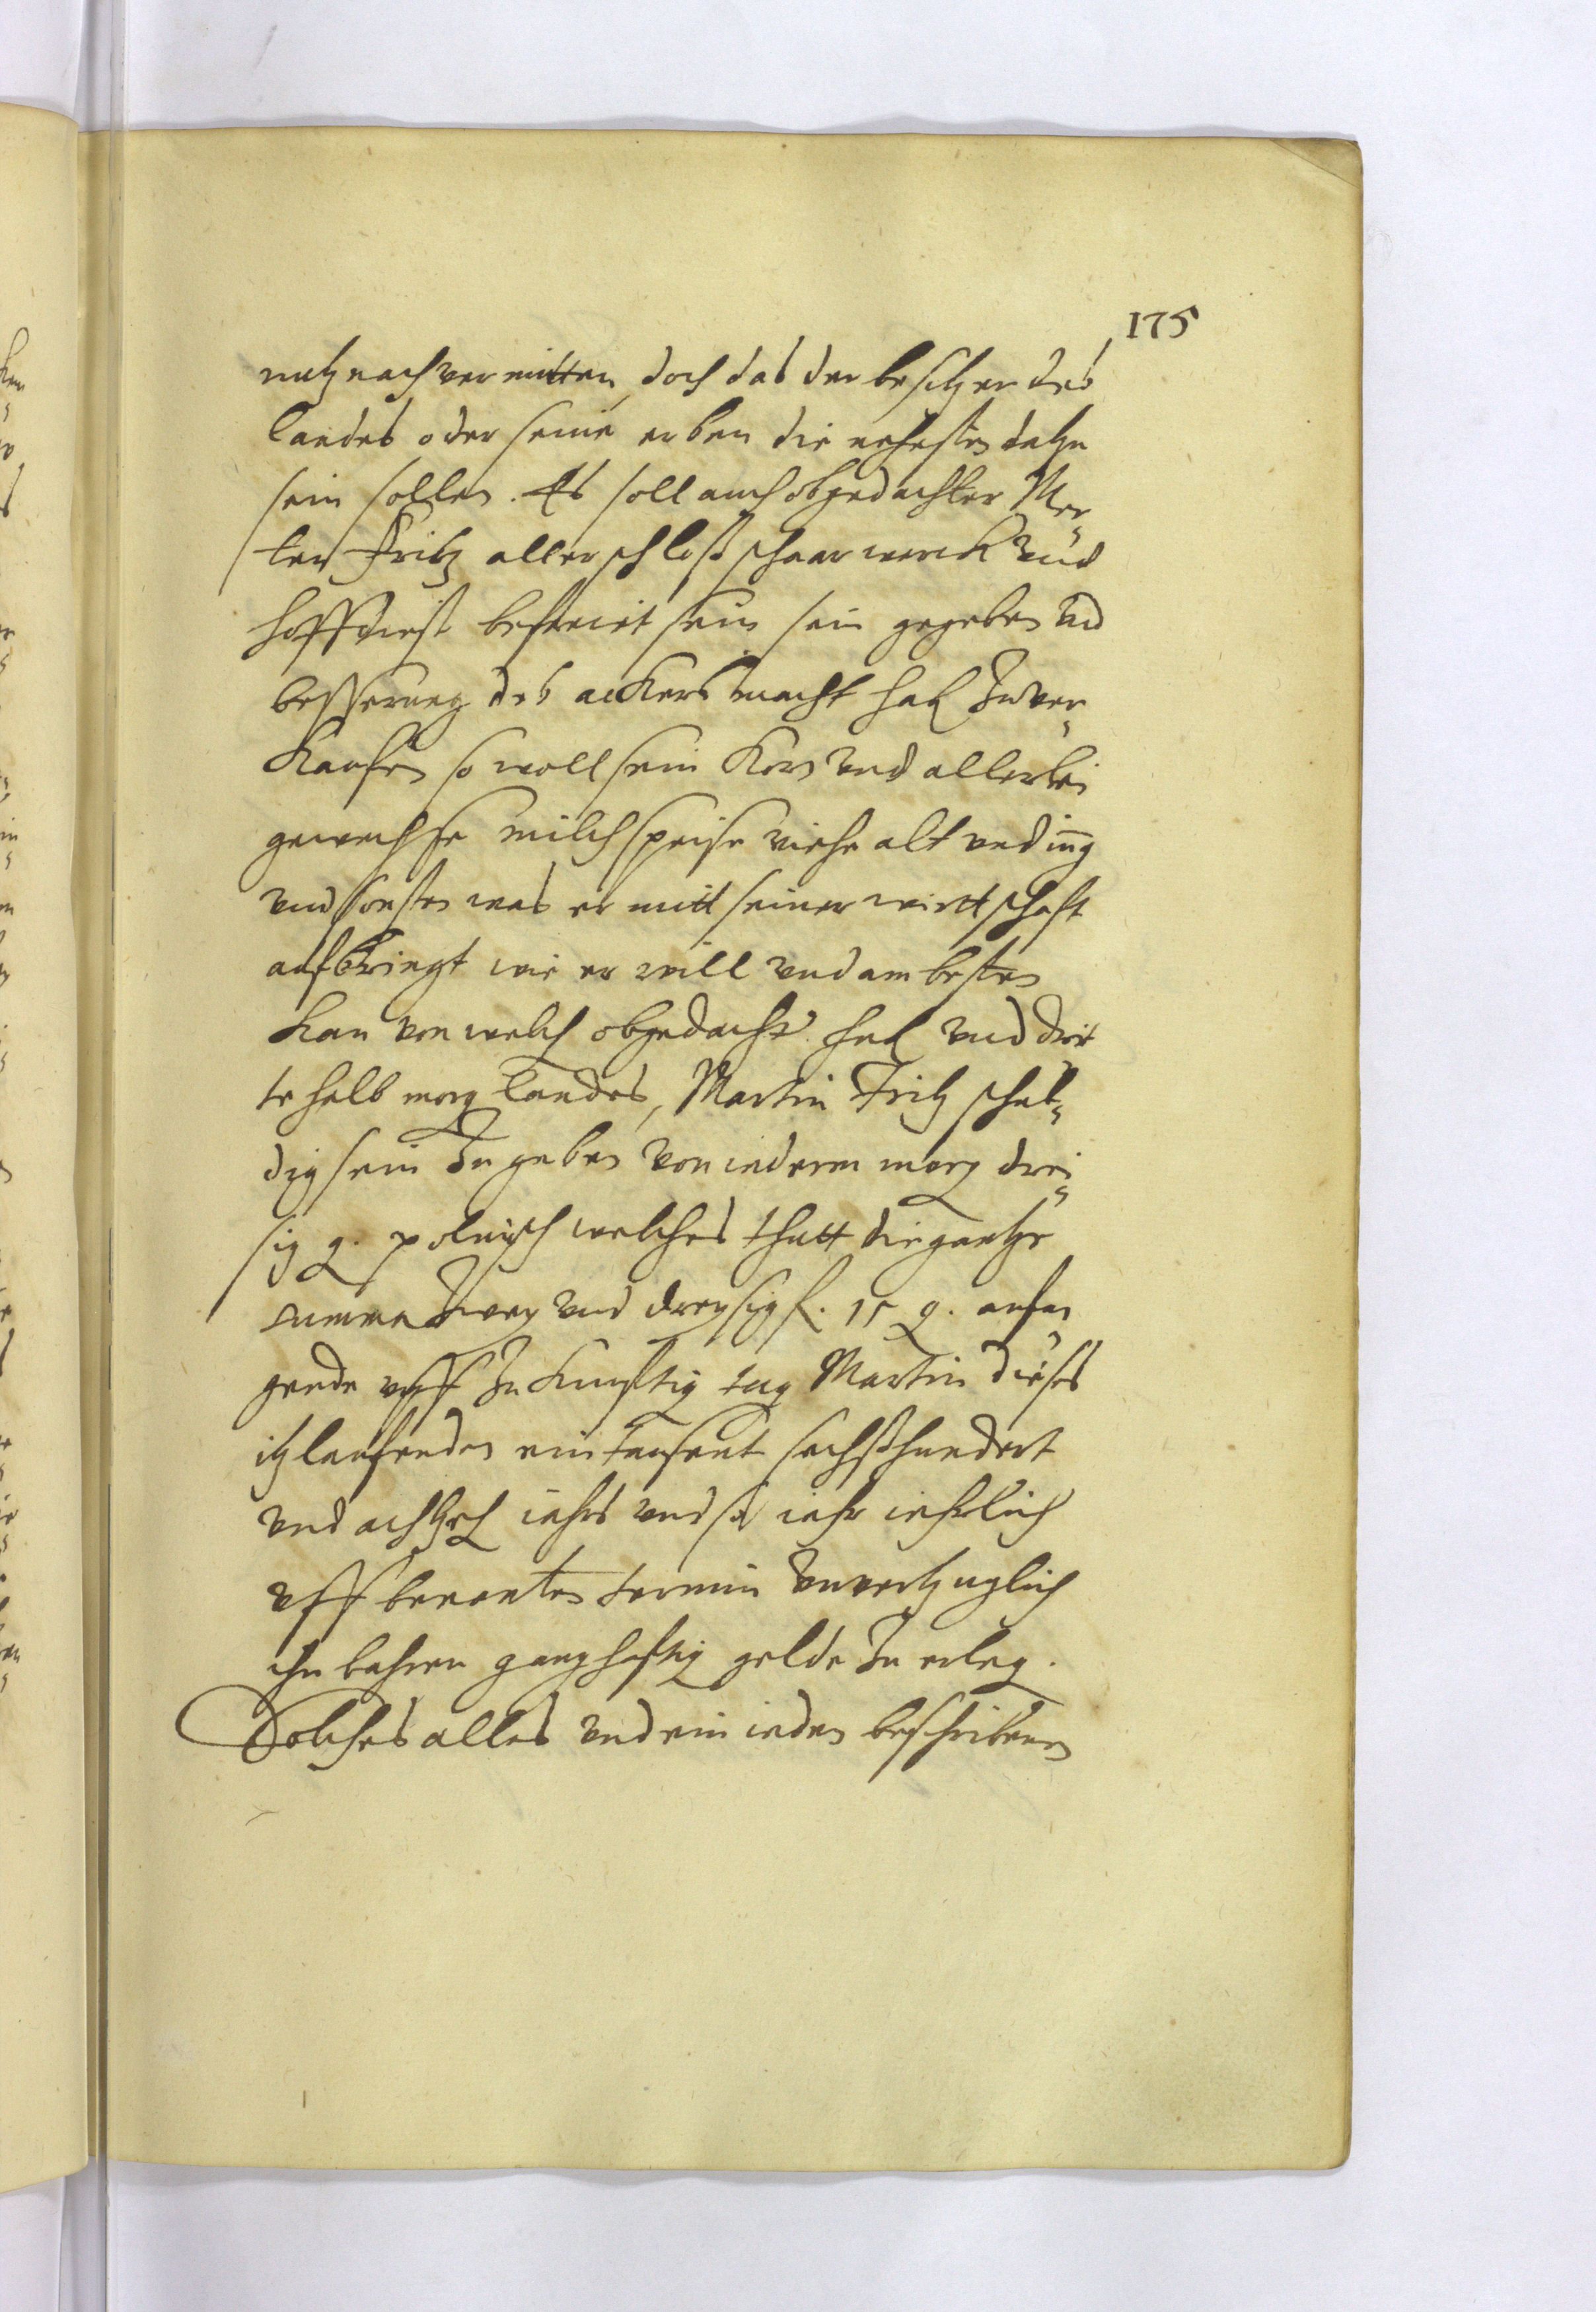 175
nutz nach vermitten, doch das der besitzer des
landes oder seine erben die nehesten datzu
sein sollen. Es soll auch obgedachter Mer„
ten Fritz aller schloß scharwerck vnd
hoffdinst befreiet sein, sein gegeben vnd
besserung des ackers macht hab zuver„
kaufen so woll sein korn vnd allerlei
gewechse milchspeise viehe alt vnd iung
vnd sonsten was er mitt seiner wirttschaft
aufbringt wie er will vnd am besten
kan von welch obgedacht hub vnd drit
te halb morg landes, Martin Fritz schul„
dig sein zu geben von iederm morg drei„
sig g. polnisch welches thutt die gantze
summa zwey vnd dreysig f. 15 g. anfan
gende vff zukunftig tag Martin dieses
itzlaufenden ein tausent sechshundert
vnd achtzeh iahrs vnd so iehr iehrlich
vff benanten termin vnvertzuglich
ihn bahren ganghaftig gelde zu erleg.
Solches alles vnd ein ieden beschribenen